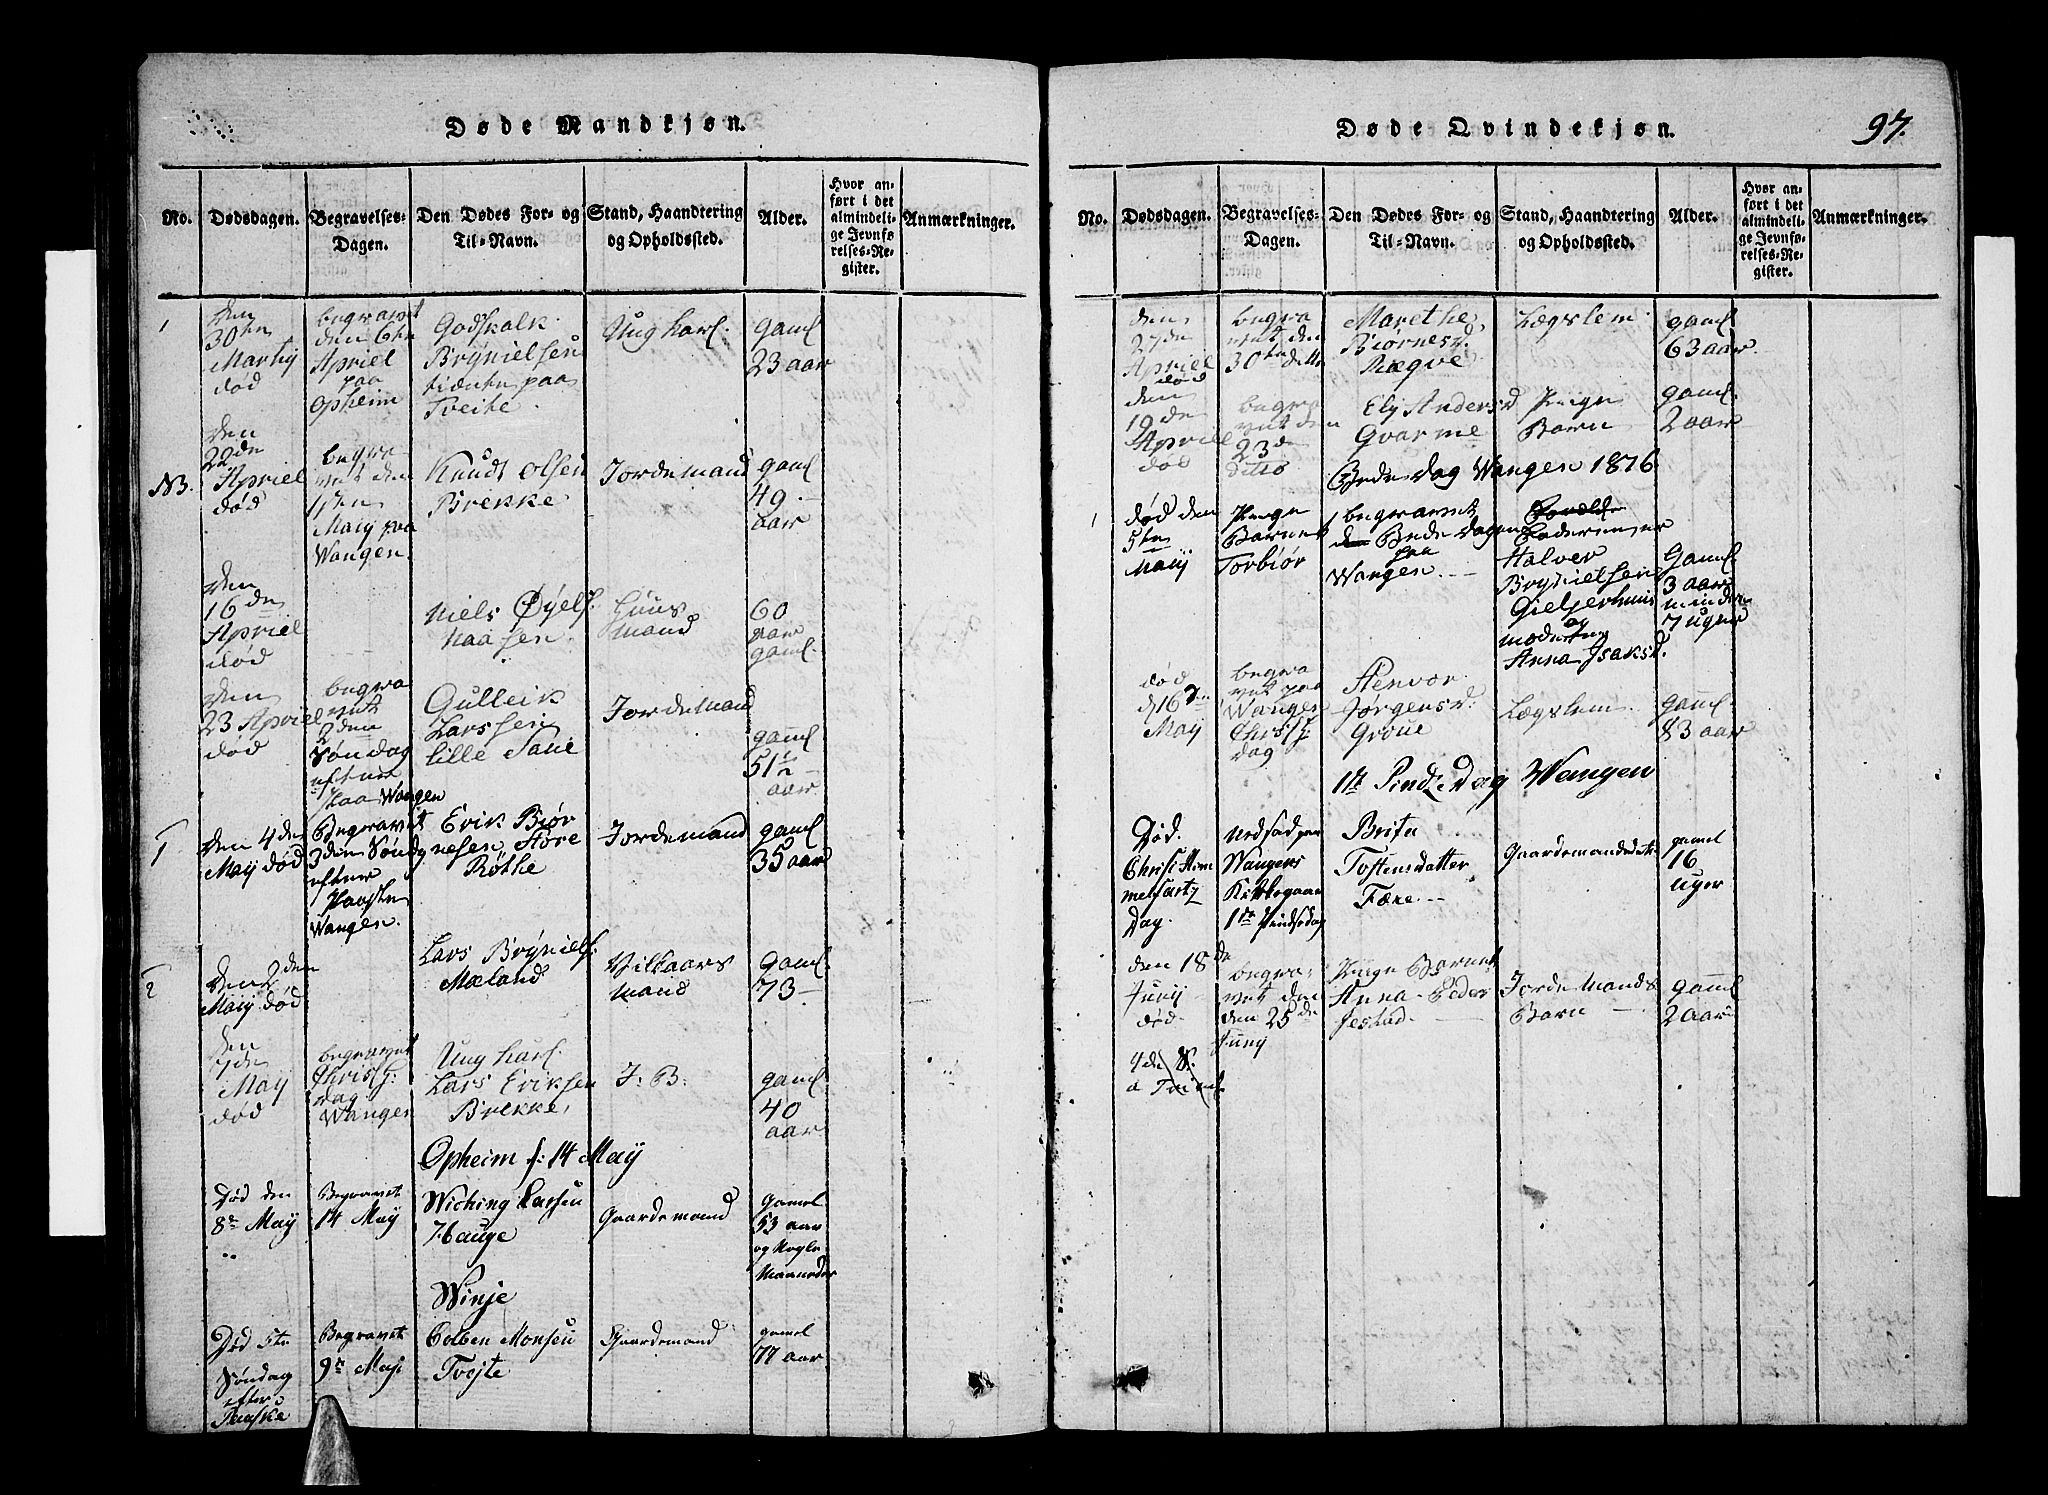 Døde Mandkjøn.
No.
Dødsdagen.
Begravelses-
Dagen.
Den Dødes For- og
Til-Navn.
Stand, Haandtering
og Opholdssted.
Alder.
Hvor an-
ført i det
almindeli-
ge Jevnfø-
relses-Re-
gister.
Anmærkninger.
1
den
30te
død
den 6te
Apriel
paa
Opheim
Godskalk
Brynielsen
paa
Tveite.
Ung karl.
gaml
23 aar
NB.
den
22de
Apriel
død
begra-
vet den
Maij paa
Wangen.
Knudt Olsen
Brekke
Jordemand
gaml
49.
aar
den
16de
Apriel
død
Niels
Huus
mand
60
aar
gaml.
den
23 Apriel
død
begra
vet
2den
Søndag
efter
paa Wangen
Gulleik
Larssen
lille
Jordemand
gaml
51 1/2
aar
1
den 4de
Maij død
Begravet
3den Sønd
efter
Paaske
Wangen.
Erik Biør
nesen Store
Røthe
Jordemand
gaml
35 aar
2
den 2den
Maij død
Lars Brynielf:
Mæland
Vilkaars
mand
gaml.
73
den
7de
Maij
død
begravet
Christ. H:
dag
Wangen
Ung karl.
Lars Eriksen
Brekke,
J: B:
gaml
40
aar
Opheim d: 14 Maij
Død den
8de Maij
Begravet
14 Maij
Wiching Larsen
Hauge
Gaardemand
Gamel
53 aar
og Nogle
Maaneder
Winje
Død 5te
Søndag
efter
Paaske
Begravet
9de Maji
Colben Monsen
Tvejte
Gaardemand
gamel
77 aar
Døde Qvindekjøn.
97.
No.
Dødsdagen.
Begravelses-
Dagen.
Den Dødes For- og
Til-Navn.
Stand, Haandtering
og Opholdssted.
Alder.
Hvor an-
ført i det
almindeli-
ge Jevnfø-
relses-Re-
gister.
Anmærkninger.
den
27de
Apriel
død
begra
vet den
30te
Marethe
Biørnesd.
Lægslem
gaml
63 aar.
den
19de
Apriel
død
begra
vet den
23de
ditto
Elj Andersd
Qvarme
Pige
Barn
gaml.
2 aar
Bede Dag Wangen 1816
1
død den
5te
Maij
Pige
Barnet
Torbiør
begravet
Bede Dagen
paa
Wangen.
Faderen er
Halver
Brynielsen
og
moderen
Anna Isaksd.
Gaml
3 aar
minder
7 uger
død
d 16de
Maij
begra
vet paa
Wangen
Christ. H:
dag
Stenvor
Jørgensd:
Groue
Lægslem
gaml
83 aar
1te Pindse Dag Wangen
Død.
Christi Him
melfartz
Dag.
Nedsad paa
Wangens
Kirkegaar
1te Pindsedag
Brita
Tostensdatter
Fære.
Gaardemandsdatr
gamel
16
uger
den 18de
Junij
død
begra,
vet den
den 25de
Junij
Pige Barnet
Anna
Jordemands
Barn
gaml
2 aar